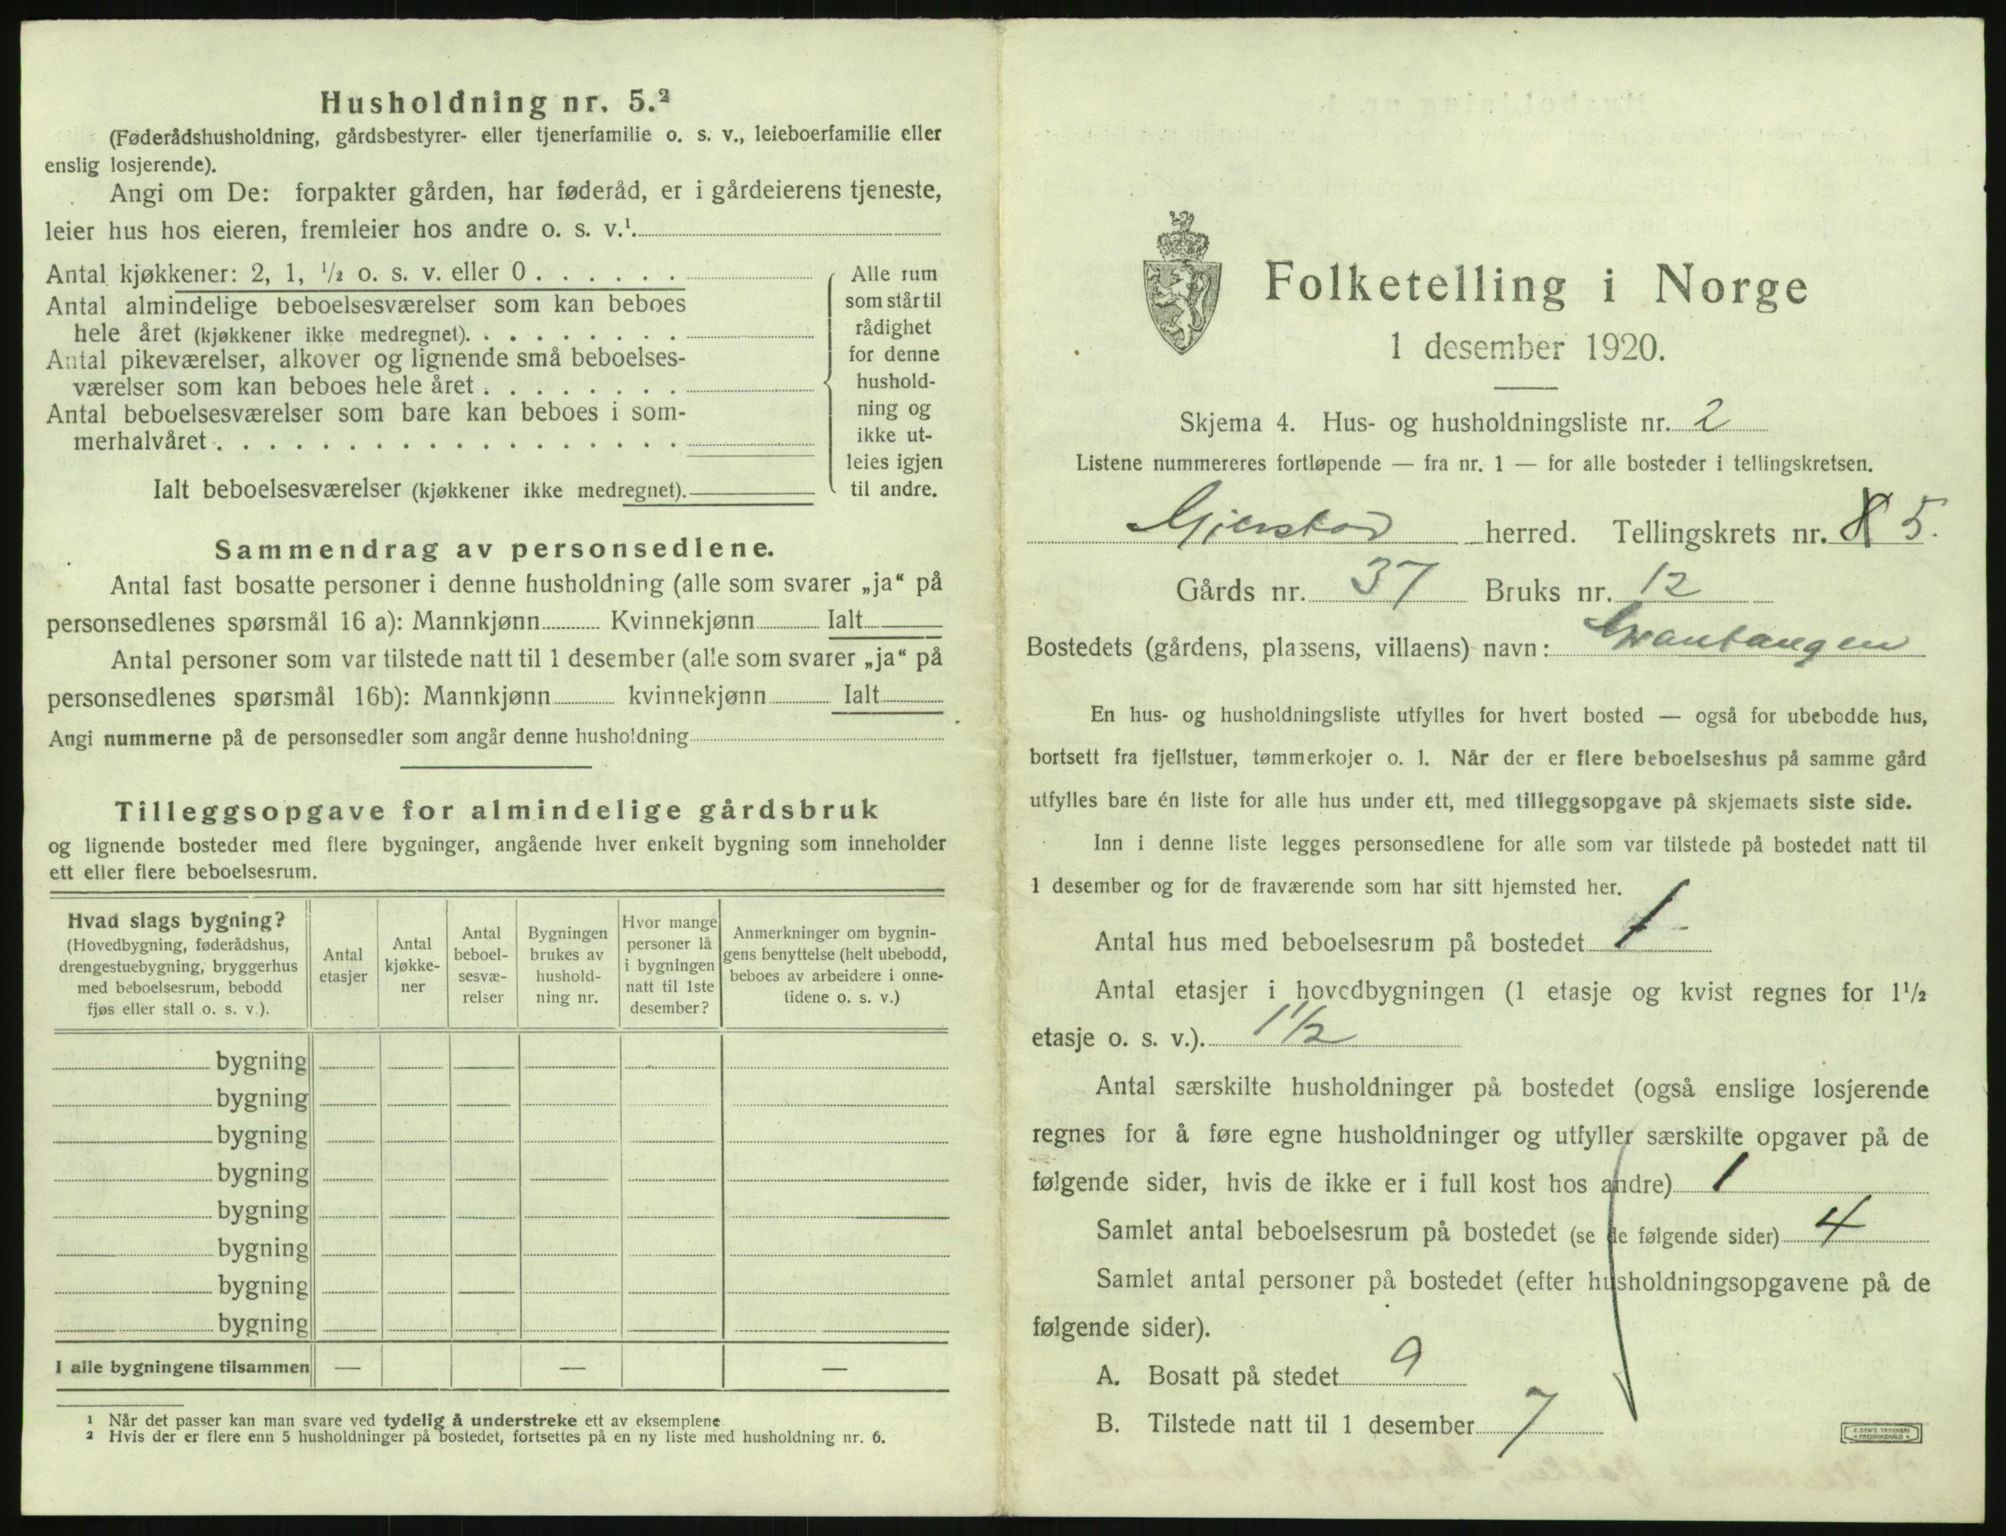 Husholdning nr. 5.²
(Føderådshusholdning, gårdsbestyrer- eller tjenerfamilie o. s. v., leieboerfamilie eller
enslig losjerende).
Angi om De: forpakter gården, har føderåd, er i gårdeierens tjeneste,
leier hus hos eieren, fremleier hos andre o. s. v.¹
Antal kjøkkener: 2, 1, ½ o. s. v. eller 0 . . . . . .
Antal almindelige beboelsesværelser som kan beboes
hele året (kjøkkener ikke medregnet). . . . . . . . .
Antal pikeværelser, alkover og lignende små beboelses-
værelser som kan beboes hele året . . . . . . . .
Antal beboelsesværelser som bare kan beboes i som-
merhalvåret . . . . . . . . . . . . . . . . . .
Ialt beboelsesværelser (kjøkkener ikke medregnet).
Alle rum
som står til
rådighet
for denne
hushold-
ning og
ikke ut-
leies igjen
til andre.
Sammendrag av personsedlene.
Antal fast bosatte personer i denne husholdning (alle som svarer „ja“ på
personsedlenes spørsmål 16 a): Mannkjønn Kvinnekjønn Ialt
Antal personer som var tilstede natt til 1 desember (alle som svarer „ja“ på
personsedlenes spørsmål 16b): Mannkjønn kvinnekjønn Ialt
Angi nummerne på de personsedler som angår denne husholdning
Tilleggsopgave for almindelige gårdsbruk
og lignende bosteder med flere bygninger, angående hver enkelt bygning som inneholder
ett eller flere beboelsesrum.
Hvad slags bygning?
(Hovedbygning, føderådshus,
drengestuebygning, bryggerhus
med beboelsesrum, bebodd
fjøs eller stall o. s. v.).
Antal
etasjer
Antal
kjøkke-
ner
Antal
beboel-
sesvæ-
relser
Bygningen
brukes av
hushold-
ning nr.
Hvor mange
personer lå
i bygningen
natt til 1ste
desember?
Anmerkninger om bygnin-
gens benyttelse (helt ubebodd,
beboes av arbeidere i onne-
tidene o. s. v.)
bygning
bygning
bygning
bygning
bygning
bygning
bygning
bygning
I alle bygningene tilsammen — — —
¹ Når det passer kan man svare ved tydelig å understreke ett av eksemplene
² Hvis der er flere enn 5 husholdninger på bostedet, fortsettes på en ny liste med husholdning nr. 6.
Folketelling i Norge
1 desember 1920.
Skjema 4. Hus- og husholdningsliste nr. 2
Listene nummereres fortløpende — fra nr. 1 — for alle bosteder i tellingskretsen.
Gjerstad herred. Tellingskrets nr. 8 5.
Gårds nr. 37 Bruks nr. 12
Bostedets (gårdens, plassens, villaens) navn: Grantangen
En hus- og husholdningsliste utfylles for hvert bosted — også for ubebodde hus,
bortsett fra fjellstuer, tømmerkojer o. l. Når der er flere beboelseshus på samme gård
utfylles bare én liste for alle hus under ett, med tilleggsopgave på skjemaets siste side.
Inn i denne liste legges personsedlene for alle som var tilstede på bostedet natt til
1 desember og for de fraværende som har sitt hjemsted her.
Antal hus med beboelsesrum på bostedet 1
Antal etasjer i hovedbygningen (1 etasje og kvist regnes for 1½
etasje o. s. v.). 1½
Antal særskilte husholdninger på bostedet (også enslige losjerende
regnes for å føre egne husholdninger og utfyller særskilte opgaver på de
følgende sider, hvis de ikke er i full kost hos andre) 1
Samlet antal beboelsesrum på bostedet (se de følgende sider) 4
Samlet antal personer på bostedet (efter husholdningsopgavene på de
følgende sider).
A. Bosatt på stedet 9
B. Tilstede natt til 1 desember 7